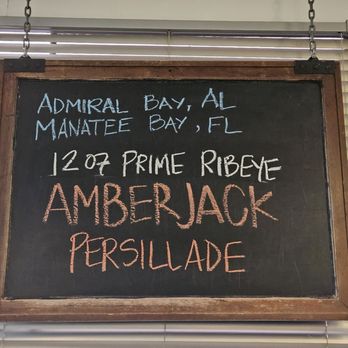 ADMIRAL BAY, AL
MANATEE BAY, FL
12 OZ PRIME RIBEYE
AMBERJACK
PERSILLADE